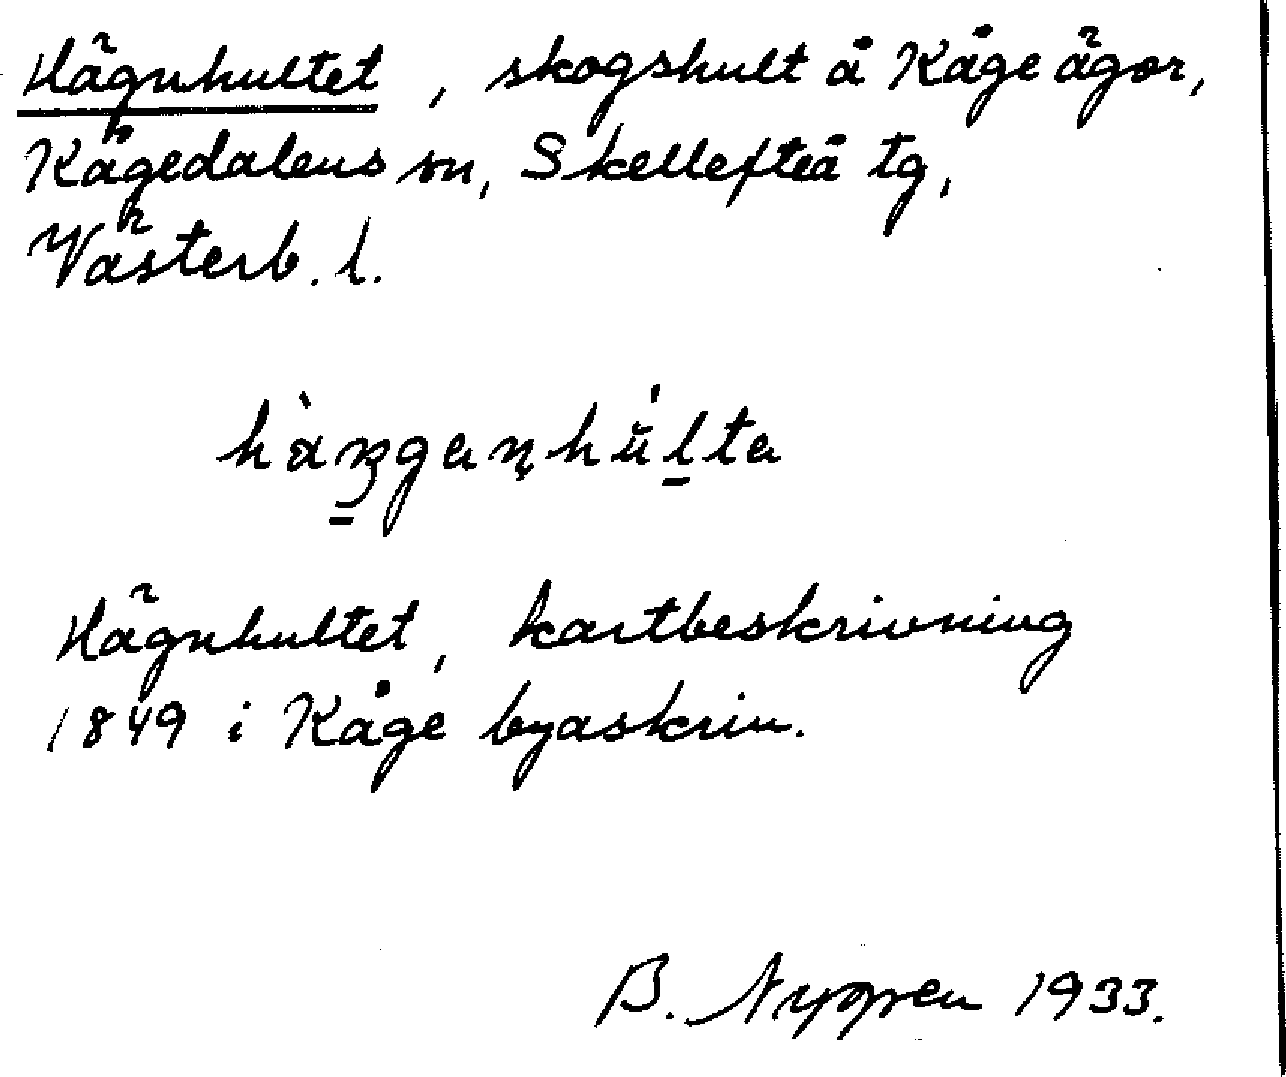 Hägnhultet, skogshult å Kåge ägor,
Kågedalens sn, Skellefteå tg,
Västerb. l.
Hägnhultet, kartbeskrivning
1849 i Kåge byaskrin.
B. Nygren 1933.